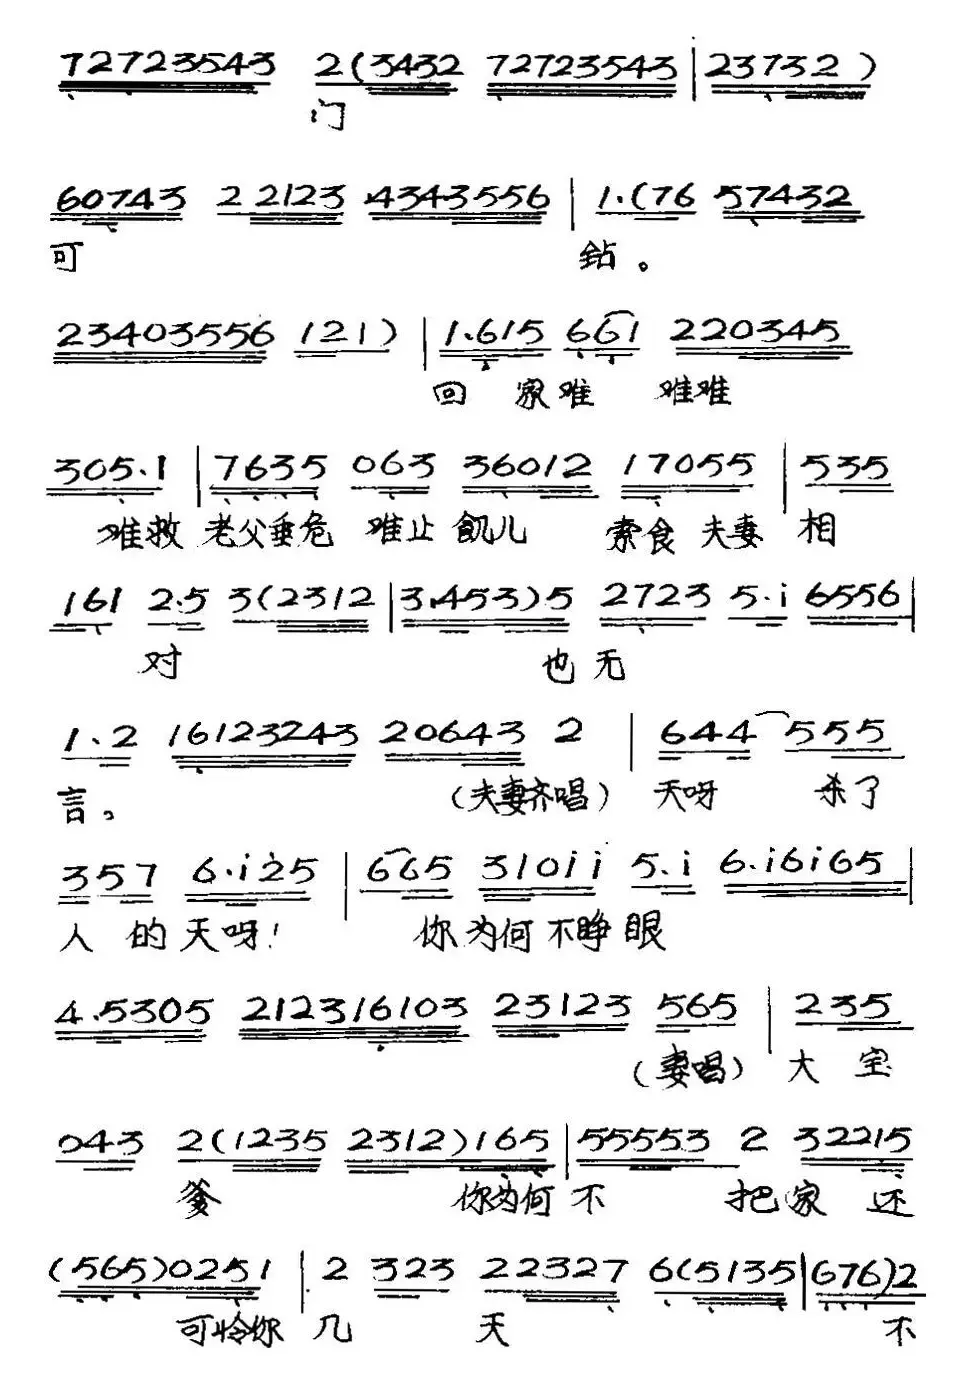 72723543 2(3432 72723543 | 23732)
门
60743 2 2123 .4343556 | 1.(76 57432
可 钻。
23403556 121) | 1.615 661 220345
回 家难 难难
305.1 | 7635 063 36012 17055 | 535
难救 老父垂危 难止 飢儿 索食 夫妻 相
161 2.5 3(2312 | 3.453)5 2723 5.i 6556 |
对 也无
1.2 16123243 20643 2 | 644 555
言。 (夫妻齐唱) 天呀 杀了
357 6.i25 | 665 310ii 5.i 6.i6i65 |
人 的 天呀! 你为何不睁眼
4.5305 212316103 23123 565 | 235
(妻唱) 大 宝
043 2(1235 2312)165 | 55553 2 32215
爹 你为何 不 把家 还
(565)0251 | 2 323 22327 6(5135 | 676)2
可怜你 几 天 不